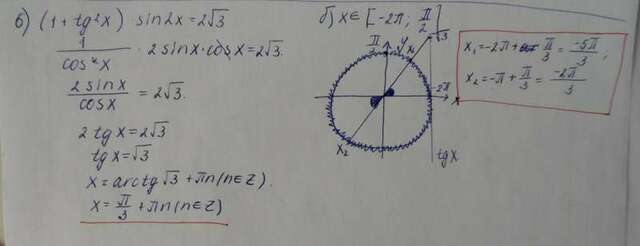 б) (1 + tg²x) · sin2x = 2√3
1/cos²x · 2 sinx · cosx = 2√3.
2 sinx/cosx = 2√3.
2 tg x = 2√3
tg x = √3
x = arctg √3 + πn (n ∈ Z).
x = π/3 + πn (n ∈ Z)
б) x ∈ [-2π; π/2]
√3
π/2
y
x₁
-2π
x
x₂
tg x
x₁ = -2π + π/3 = -5π/3;
x₂ = -π + π/3 = -2π/3